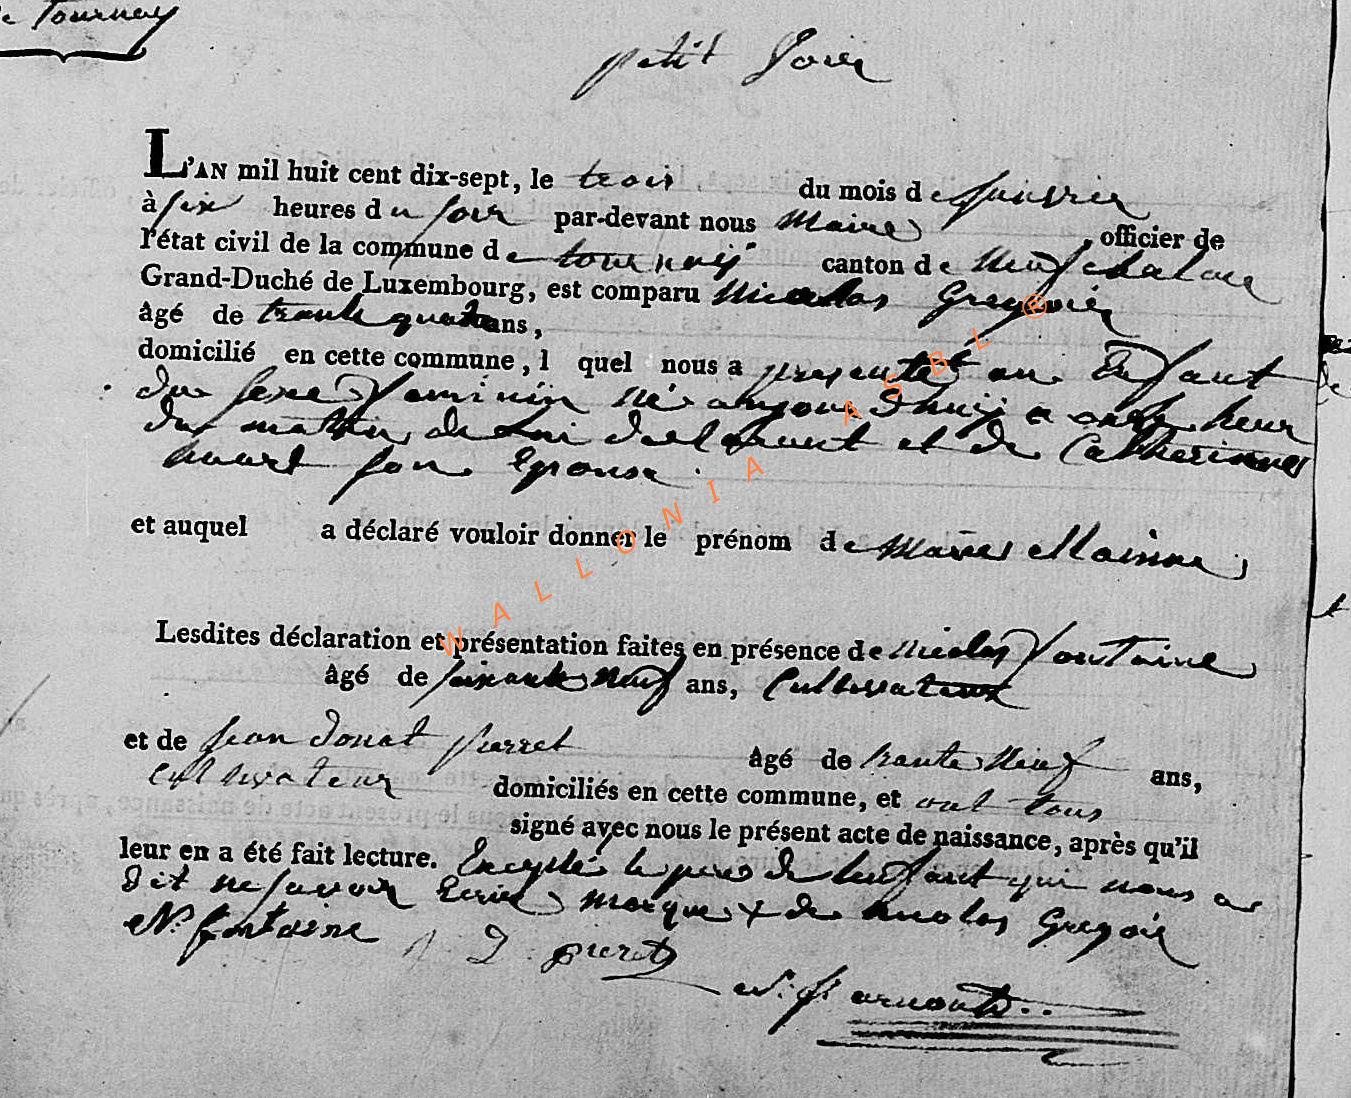 de Tournay
petit Voir
L'AN mil huit cent dix-sept, le trois du mois de Janvier
à six heures du soir par-devant nous Maire officier de
l'état civil de la commune de tournaÿ canton de Neufchateau
Grand-Duché de Luxembourg, est comparu Nicolas Gregoir
âgé de trente quatre ans,
domicilié en cette commune, l quel nous a presenté un Enfant
du sexe feminin né aujourdhuÿ a onze heur
du mattin de lui declarant et de Catherinne
huart son Epouse
et auquel a déclaré vouloir donner le prénom de Marie
Lesdites déclaration et présentation faites en présence de Nicolas fontaine
âgé de soixante Neuf ans, Cultivateur
et de Jean donat pierret âgé de trante Neuf ans,
cultivateur domiciliés en cette commune, et ont tous
signé avec nous le présent acte de naissance, après qu'il
leur en a été fait lecture. Excepté le pere de lenfant qui nous a
dit ne savoir Ecrire marque + de nicolas Gregoir
N. fontaine J D pieret
arnould
WALLONIA ASBL ®